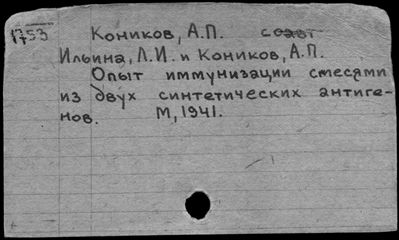 1753 Коников, А.П. соавт
Ильина, Л.И. и Коников, А.П.
Опыт иммунизации смесями
из двух синтетических антиге-
нов. М, 1941.